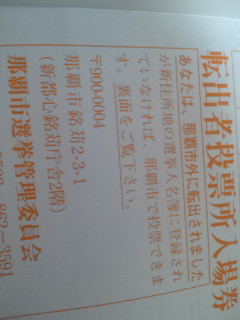 転出者投票所入場券
あなたは、那覇市外に転出されました
が新住所地の選挙人名簿に登録され
ていなければ、那覇市で投票できま
す。裏面をご覧下さい。
〒900-0004
那覇市銘苅2-3-1
(新都心銘苅庁舎2階)
那覇市選挙管理委員会